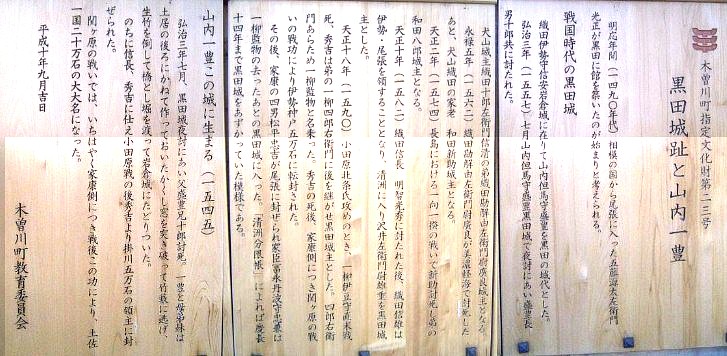 木曽川町指定文化財第二三号
黒田城趾と山内一豊
明応年間(一四九〇年代)相模の国から尾張に入った五藤源太左衛門
光正が黒田に館を築いたのが始まりと考えられる。
戦国時代の黒田城
織田伊勢守信安岩倉城に在りて山内但馬守盛豊を黒田の城代とした。
弘治三年(一五五七)七月山内但馬守盛豊黒田城で夜討にあい盛豊長
男十郎共に討たれた。
犬山城主織田十郎左衛門信清の弟織田勘解由左衛門尉廣良城主となる。
永禄五年(一五六二)織田勘解由左衛門尉廣良が美濃軽海で討死した
あと、犬山織田の家老 和田新助城主となる。
天正二年(一五七四)長島における一向一揆の戦いで新助討死し弟の
和田八郎城主となる。
天正十年(一五八二)織田信長 明智光秀に討たれた後、織田信雄は
伊勢・尾張を領することとなり、清洲に入り沢井左衛門尉雄重を黒田城
主とした。
天正十八年(一五九〇)小田原北条氏攻めのとき、一柳伊豆守直末戦
死、秀吉は弟の一柳四郎右衛門に後を継がせ黒田城主とした。四郎右衛
門あらため一柳監物と名乗った。秀吉の死後、家康側につき関ヶ原の戦
いの戦功により伊勢神戸五万石に転封された。
その後、家康の四男松平忠吉が尾張に封ぜられ家臣冨永丹波守忠兼は
一柳監物の去ったあとの黒田城に入った。「清洲分限帳」によれば慶長
十四年まで黒田城をあずかっていた模様である。
山内一豊この城に生まる(一五四五)
弘治三年七月、黒田城夜討にあい父盛豊兄十郎討死。一豊と母弟妹は
土居の後ろにかねて作っておいたかくし窓を突き破って竹薮に逃げ、
生竹を倒して橋とし堀を渡って岩倉城にたどりついた。
のちに信長、秀吉に仕え小田原戦の後秀吉より掛川五万石の領主に封
ぜられた。
関ヶ原の戦いでは、いちはやく家康側につき戦後この功により、土佐
一国二十万石の大大名になった。
平成十年九月吉日
木曽川町教育委員会